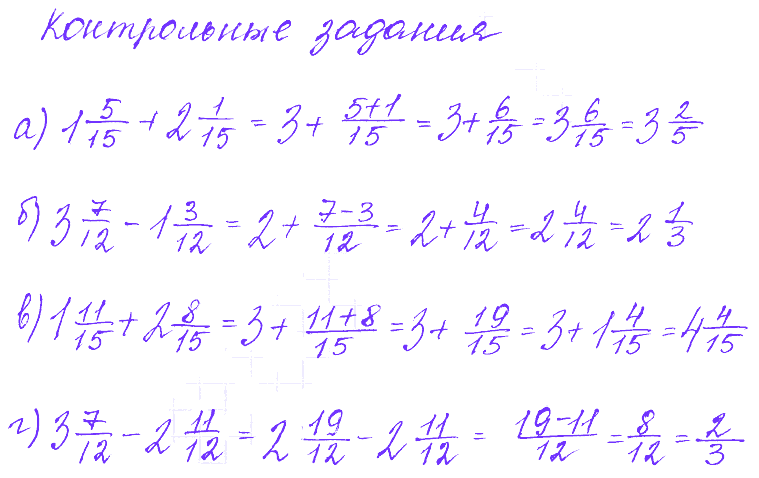 Контрольные задания
а) 1 5/15 + 2 1/15 = 3 + (5+1)/15 = 3 + 6/15 = 3 6/15 = 3 2/5
б) 3 7/12 - 1 3/12 = 2 + (7-3)/12 = 2 + 4/12 = 2 4/12 = 2 1/3
в) 1 11/15 + 2 8/15 = 3 + (11+8)/15 = 3 + 19/15 = 3 + 1 4/15 = 4 4/15
г) 3 7/12 - 2 11/12 = 2 19/12 - 2 11/12 = (19-11)/12 = 8/12 = 2/3